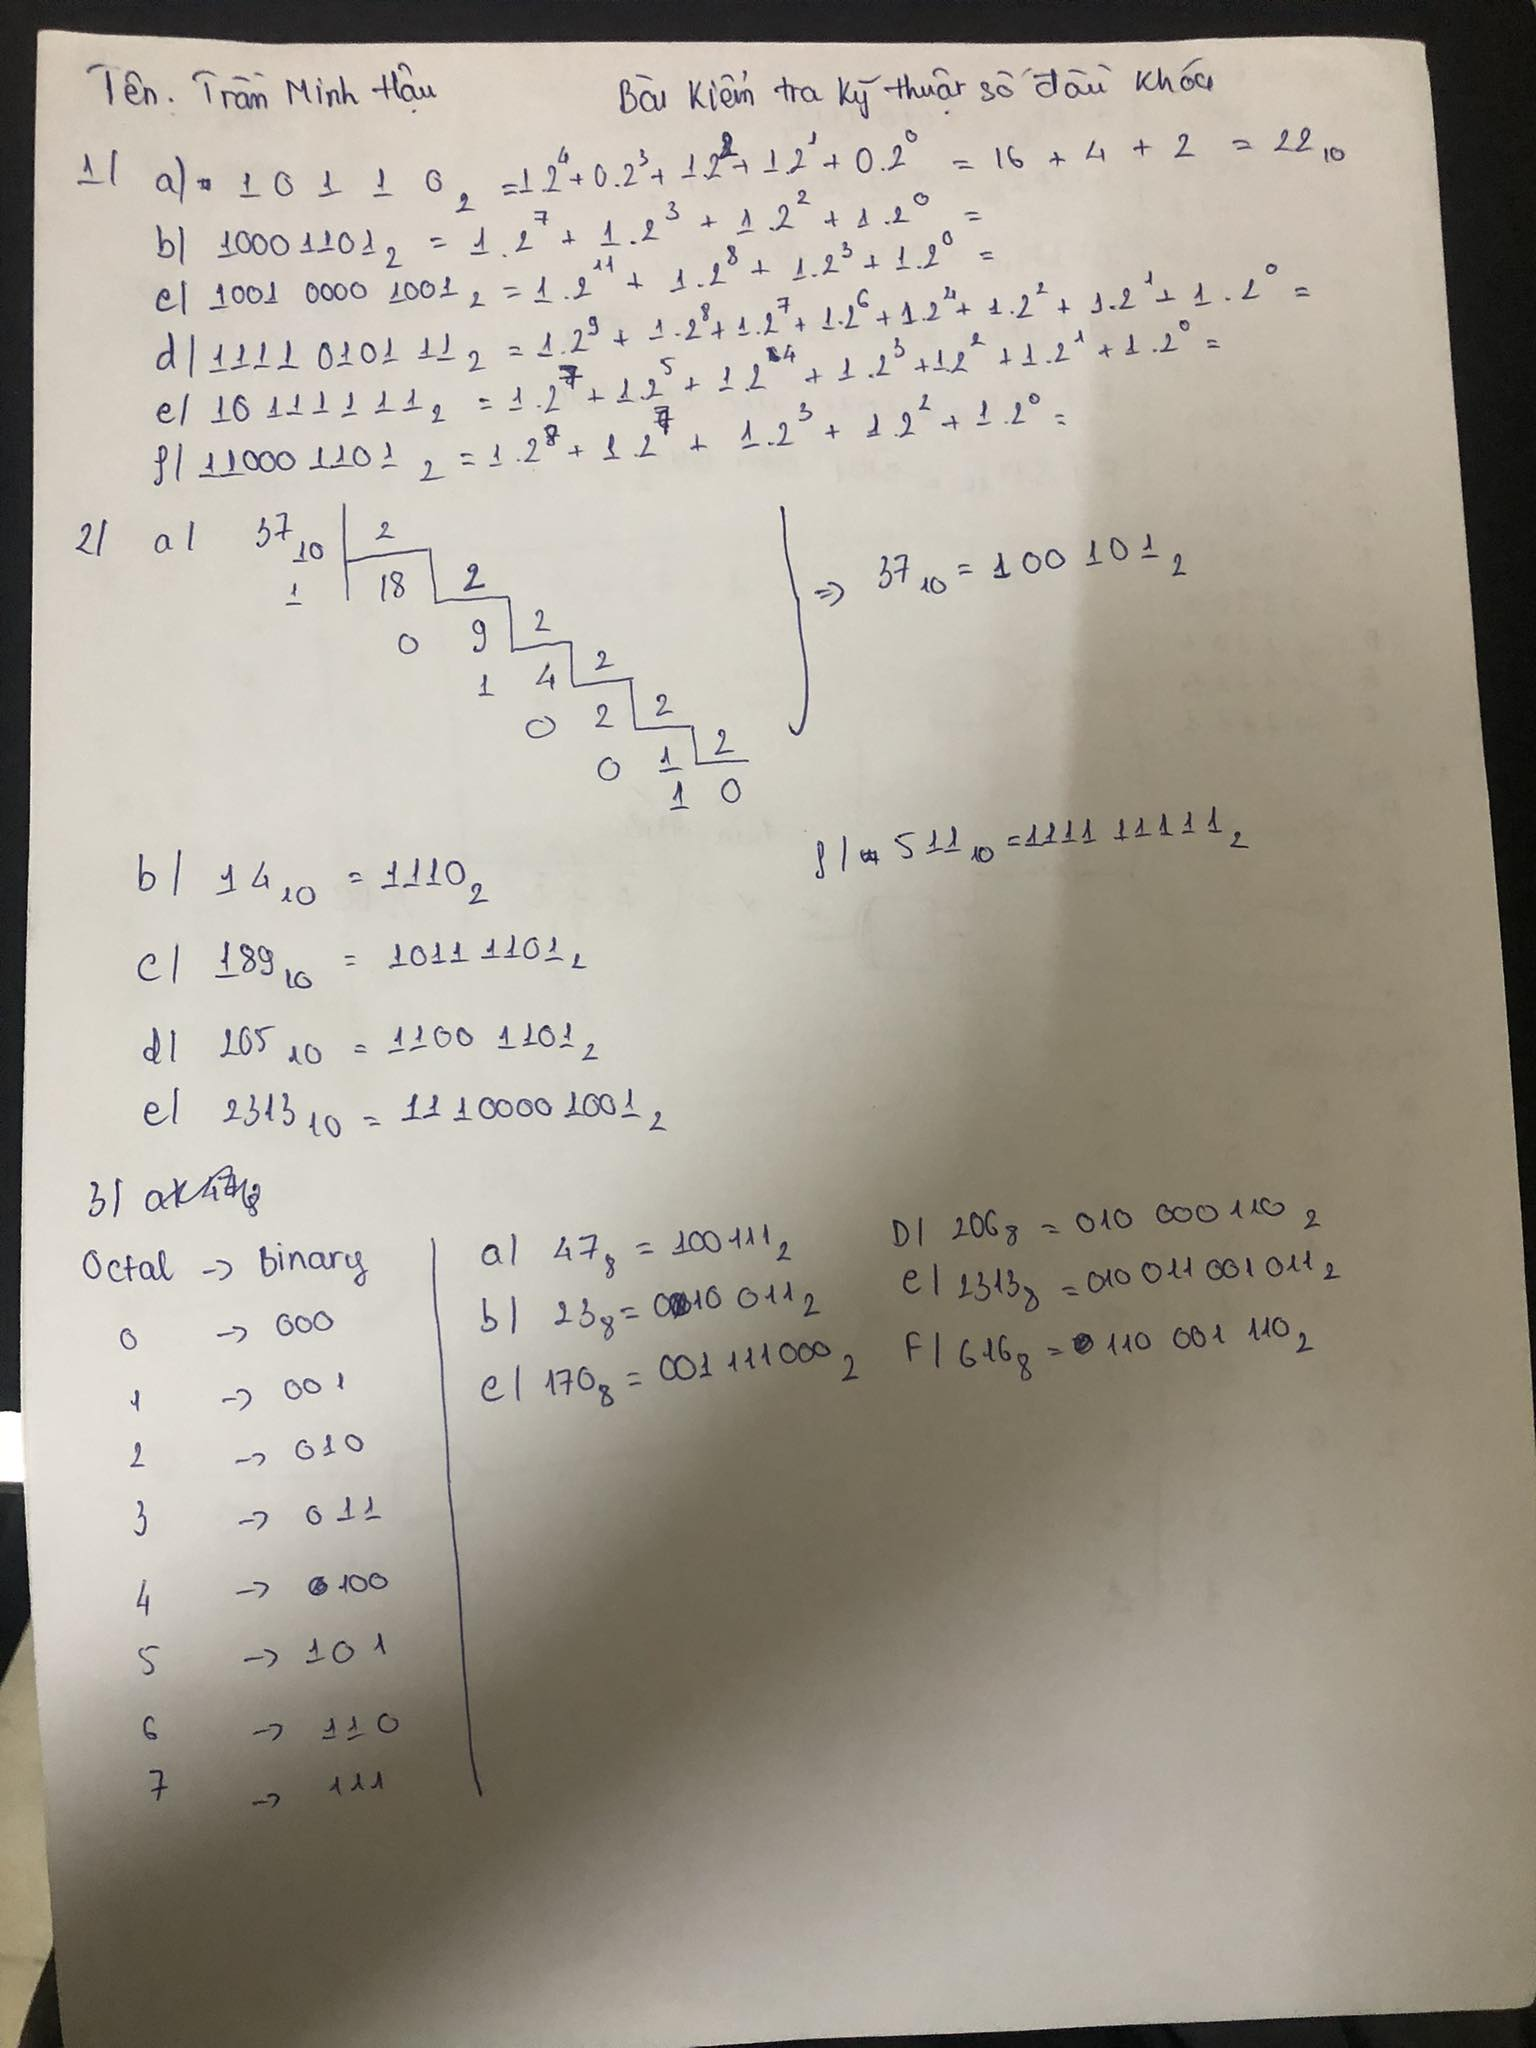 Tên. Trần Minh Hậu Bài Kiểm tra Kỹ thuật số đầu khóa
1/ a) 1 0 1 1 0₂ = 1.2⁴ + 0.2³ + 1.2² + 1.2¹ + 0.2⁰ = 16 + 4 + 2 = 22₁₀
b/ 10001101₂ = 1.2⁷ + 1.2³ + 1.2² + 1.2⁰ =
c/ 1001 0000 1001₂ = 1.2¹¹ + 1.2⁸ + 1.2³ + 1.2⁰ =
d/ 1111 0101 11₂ = 1.2⁹ + 1.2⁸ + 1.2⁷ + 1.2⁶ + 1.2⁴ + 1.2² + 1.2¹ + 1.2⁰ =
e/ 10 111111₂ = 1.2⁷ + 1.2⁵ + 1.2⁴ + 1.2³ + 1.2² + 1.2¹ + 1.2⁰ =
f/ 11000 1101₂ = 1.2⁸ + 1.2⁷ + 1.2³ + 1.2² + 1.2⁰ =
2/ a/ 37₁₀ 2
1 18 2
0 9 2
1 4 2
0 2 2
0 1 2
1 0
=> 37₁₀ = 100 101₂
f/ 511₁₀ = 1111 11111₂
b/ 14₁₀ = 1110₂
c/ 189₁₀ = 1011 1101₂
d/ 205₁₀ = 1100 1101₂
e/ 2313₁₀ = 1110000 1001₂
3/
Octal -> Binary
0 -> 000
1 -> 001
2 -> 010
3 -> 011
4 -> 100
5 -> 101
6 -> 110
7 -> 111
a/ 47₈ = 100111₂
b/ 23₈ = 010 011₂
c/ 170₈ = 001 111000₂
D/ 206₈ = 010 000 110₂
e/ 2313₈ = 010 011 001 011₂
F/ 616₈ = 110 001 110₂